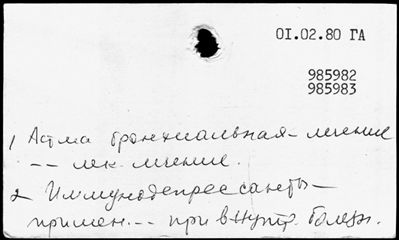 01.02.80 ГА
985982
985983
1 Астма бронхиальная – лечение
–– лек. лечение.
2 Иммунодепрессанты –
примен. –– при внутр. болезн.